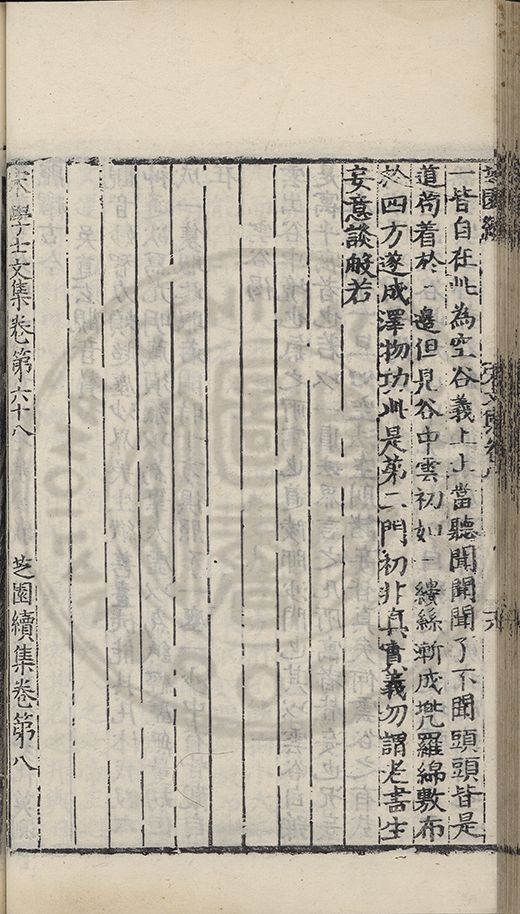 一皆自在此為空谷義上上當聽聞聞聞了不聞頭頭皆是
道苟着於谷邊但見谷中雲初如一縷絲漸成兠羅綿敷布
於四方遂成澤物功此是第二門初非真實義勿謂老書生
妄意談般若
宋學士文集卷第六十八 芝園續集卷第八